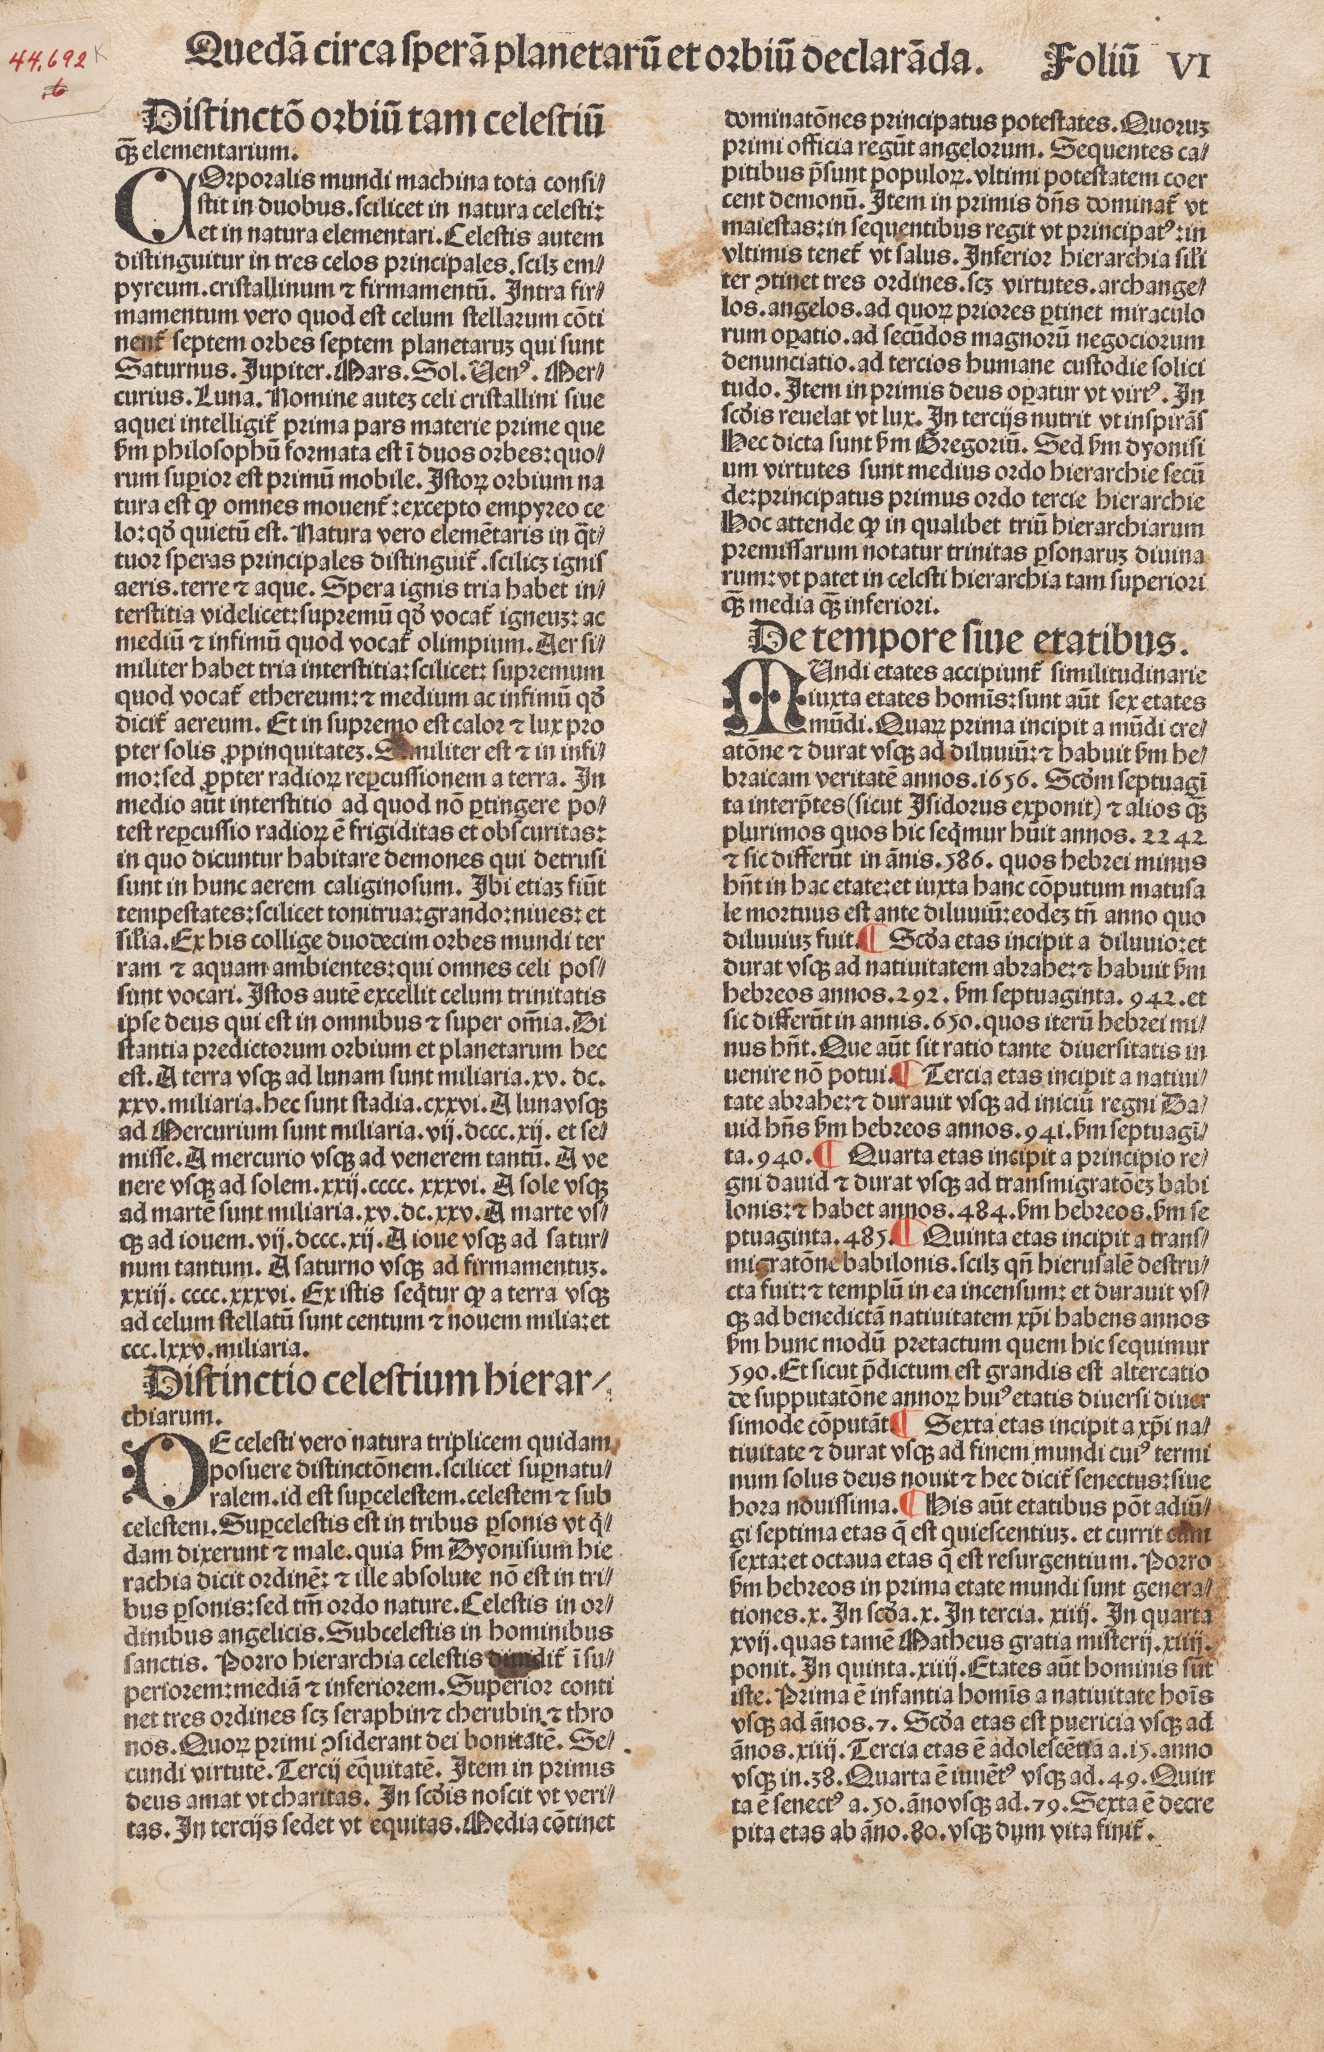 44.692 K
.6
Quedā circa sperā planetarū et orbiū declarāda. Foliū VI
Distinctō orbiū tam celestiū
qꝫ elementarium.
COrporalis mundi machina tota consi⸗
stit in duobus.scilicet in natura celesti:
et in natura elementari.Celestis autem
distinguitur in tres celos principales.scilꝫ em⸗
pyreum.cristallinum ⁊ firmamentū. Intra fir⸗
mamentum vero quod est celum stellarum cōti
nent᷑ septem orbes septem planetaruꝫ qui sunt
Saturnus. Jupiter. Mars. Sol. Ven⁹. Mer⸗
curius. Luna. Nomine auteꝫ celi cristallini siue
aquei intelligit᷑ prima pars materie prime que
ẜm philosophū formata est ī duos orbes:quo⸗
rum suꝑior est primū mobile. Istoꝝ orbium na
tura est ꝙ omnes mouent᷑:excepto empyreo ce
lo:qđ quietū est. Natura vero elemētaris in q̄t⸗
tuor speras principales distinguit᷑.scilicꝫ ignis
aeris.terre ⁊ aque. Spera ignis tria habet in⸗
terstitia videlicet:supremū qđ vocat᷑ igneuꝫ: ac
mediū ⁊ infimū quod vocat᷑ olimpium. Aer si⸗
militer habet tria interstitia:scilicet: supremum
quod vocat᷑ ethereum:⁊ medium ac infimū qđ
dicit᷑ aereum. Et in supremo est calor ⁊ lux pro
pter solis ꝓpinquitateꝫ. Similiter est ⁊ in infi⸗
mo:sed ꝓpter radioꝝ reꝑcussionem a terra. In
medio aūt interstitio ad quod nō ꝑtingere po⸗
test reꝑcussio radioꝝ ē frigiditas et obscuritas:
in quo dicuntur habitare demones qui detrusi
sunt in hunc aerem caliginosum. Ibi etiaꝫ fiūt
tempestates:scilicet tonitrua:grando:niues: et
sil̄ia. Ex his collige duodecim orbes mundi ter
ram ⁊ aquam ambientes:qui omnes celi pos⸗
sunt vocari. Istos autē excellit celum trinitatis
ipse deus qui est in omnibus ⁊ super om̄ia. Di
stantia predictorum orbium et planetarum hec
est. A terra vsqꝫ ad lunam sunt miliaria. xv. dc.
xxv. miliaria.hec sunt stadia. cxxvi. A luna vsqꝫ
ad Mercurium sunt miliaria. vij. dccc. xij. et se⸗
misse. A mercurio vsqꝫ ad venerem tantū. A ve
nere vsqꝫ ad solem. xxij.cccc. xxxvi. A sole vsqꝫ
ad martē sunt miliaria. xv. dc. xxv. A marte vs⸗
qꝫ ad iouem. vij. dccc. xij. A ioue vsqꝫ ad satur⸗
num tantum. A saturno vsqꝫ ad firmamentuꝫ.
xxiij. cccc. xxxvi. Ex istis seq̄tur ꝙ a terra vsqꝫ
ad celum stellatū sunt centum ⁊ nouem milia:et
ccc. lxxv. miliaria.
Distinctio celestium hierar⸗
chiarum.
DE celesti vero natura triplicem quidam
posuere distinctōnem.scilicet suꝑnatu⸗
ralem.id est suꝑcelestem.celestem ⁊ sub
celestem. Suꝑcelestis est in tribus ꝑsonis vt q̄⸗
dam dixerunt ⁊ male. quia ẜm Dyonisium hie
rachia dicit ordinē: ⁊ ille absolute nō est in tri⸗
bus ꝑsonis:sed tm̄ ordo nature. Celestis in or⸗
dinibus angelicis. Subcelestis in hominibus
sanctis. Porro hierarchia celestis diuidit᷑ ī su⸗
periorem:mediā ⁊ inferiorem. Superior conti
net tres ordines scꝫ seraphin⁊ cherubin ⁊ thro
nos. Quoꝝ primi ꝯsiderant dei bonitatē. Se⸗
cundi virtutē. Tercij eq̄uitatē. Item in primis
deus amat vt charitas. In scđis noscit vt veri⸗
tas. In tercijs sedet vt equitas. Media cōtinet
dominatōnes principatus potestates. Quoruꝫ
primi officia regūt angelorum. Sequentes ca⸗
pitibus p̄sunt populoꝝ. vltimi potestatem coer
cent demonū. Item in primis dn̄s dominat᷑ vt
maiestas:in sequentibus regit vt principat⁹:in
vltimis tenet᷑ vt salus. Inferior hierarchia sili
ter ꝯtinet tres ordines.scꝫ virtutes.archange⸗
los.angelos.ad quoꝝ priores ꝑtinet miraculo
rum oꝑatio.ad secūdos magnorū negociorum
denunciatio.ad tercios humane custodie solici
tudo. Item in primis deus oꝑatur vt virt⁹. In
scđis reuelat vt lux. In tercijs nutrit vt inspirās
Hec dicta sunt ẜm Gregoriū. Sed ẜm dyonisi
um virtutes sunt medius ordo hierarchie secū
de:principatus primus ordo tercie hierarchie
Hoc attende ꝙ in qualibet triū hierarchiarum
premissarum notatur trinitas ꝑsonaruꝫ diuina
rum:vt patet in celesti hierarchia tam superiori
qꝫ media qꝫ inferiori.
De tempore siue etatibus.
MUndi etates accipiunt᷑ similitudinarie
iuxta etates homīs:sunt aūt sex etates
mūdi. Quaꝝ prima incipit a mūdi cre⸗
atōne ⁊ durat vsqꝫ ad diluuiū:⁊ habuit ẜm he⸗
braicam veritatē annos. 1656. Scđm septuagī
ta interp̄tes(sicut Isidorus exponit) ⁊ alios qꝫ
plurimos quos hic seq̄mur hūit annos. 2242
⁊ sic differūt in ānis. 586. quos hebrei minus
hn̄t in hac etate:et iuxta hanc cōputum matusa
le mortuus est ante diluuiū:eodeꝫ tn̄ anno quo
diluuiuꝫ fuit. ¶ Scđa etas incipit a diluuio:et
durat vsqꝫ ad natiuitatem abrahe:⁊ habuit ẜm
hebreos annos. 292. ẜm septuaginta. 942. et
sic differūt in annis. 650. quos iterū hebrei mi⸗
nus hn̄t. Que aūt sit ratio tante diuersitatis in
uenire nō potui. ¶ Tercia etas incipit a natiui⸗
tate abrahe:⁊ durauit vsqꝫ ad iniciū regni Da⸗
uid hn̄s ẜm hebreos annos. 941. ẜm septuagī⸗
ta. 940. ¶ Quarta etas incipit a principio re⸗
gni dauid ⁊ durat vsqꝫ ad transmigratōeꝫ babi
lonis:⁊ habet annos. 484. ẜm hebreos. ẜm se
ptuaginta. 485. ¶ Quinta etas incipit a trans⸗
migratōne babilonis. scilꝫ qn̄ hierusalē destru⸗
cta fuit:⁊ templū in ea incensum: et durauit vs⸗
qꝫ ad benedictā natiuitatem xp̄i habens annos
ẜm hunc modū pretactum quem hic sequimur
590. Et sicut p̄dictum est grandis est altercatio
de supputatōne annoꝝ hui⁹ etatis diuersi diuer
simode cōputāt ¶ Sexta etas incipit a xp̄i na⸗
tiuitate ⁊ durat vsqꝫ ad finem mundi cui⁹ termi
num solus deus nouit ⁊ hec dicit᷑ senectus:siue
hora nouissima. ¶ His aūt etatibus pōt adiū⸗
gi septima etas q̄ est quiescentiuꝫ. et currit cum
sexta:et octaua etas q̄ est resurgentium. Porro
ẜm hebreos in prima etate mundi sunt genera⸗
tiones. x. In scđa. x. In tercia. xiiij. In quarta
xvij. quas tamē Matheus gratia misterij. xiiij.
ponit. In quinta. xiiij. Etates aūt hominis sūt
iste. Prima ē infantia homīs a natiuitate hoīs
vsqꝫ ad ānos. 7. Scđa etas est puericia vsqꝫ ad
ānos. xiiij. Tercia etas ē adolescētia a. 15. anno
vsqꝫ in. 38. Quarta ē iuuēt⁹ vsqꝫ ad. 49. Quin
ta ē senect⁹ a. 50. āno vsqꝫ ad. 79. Sexta ē decre
pita etas ab āno. 80. vsqꝫ dum vita finit᷑.